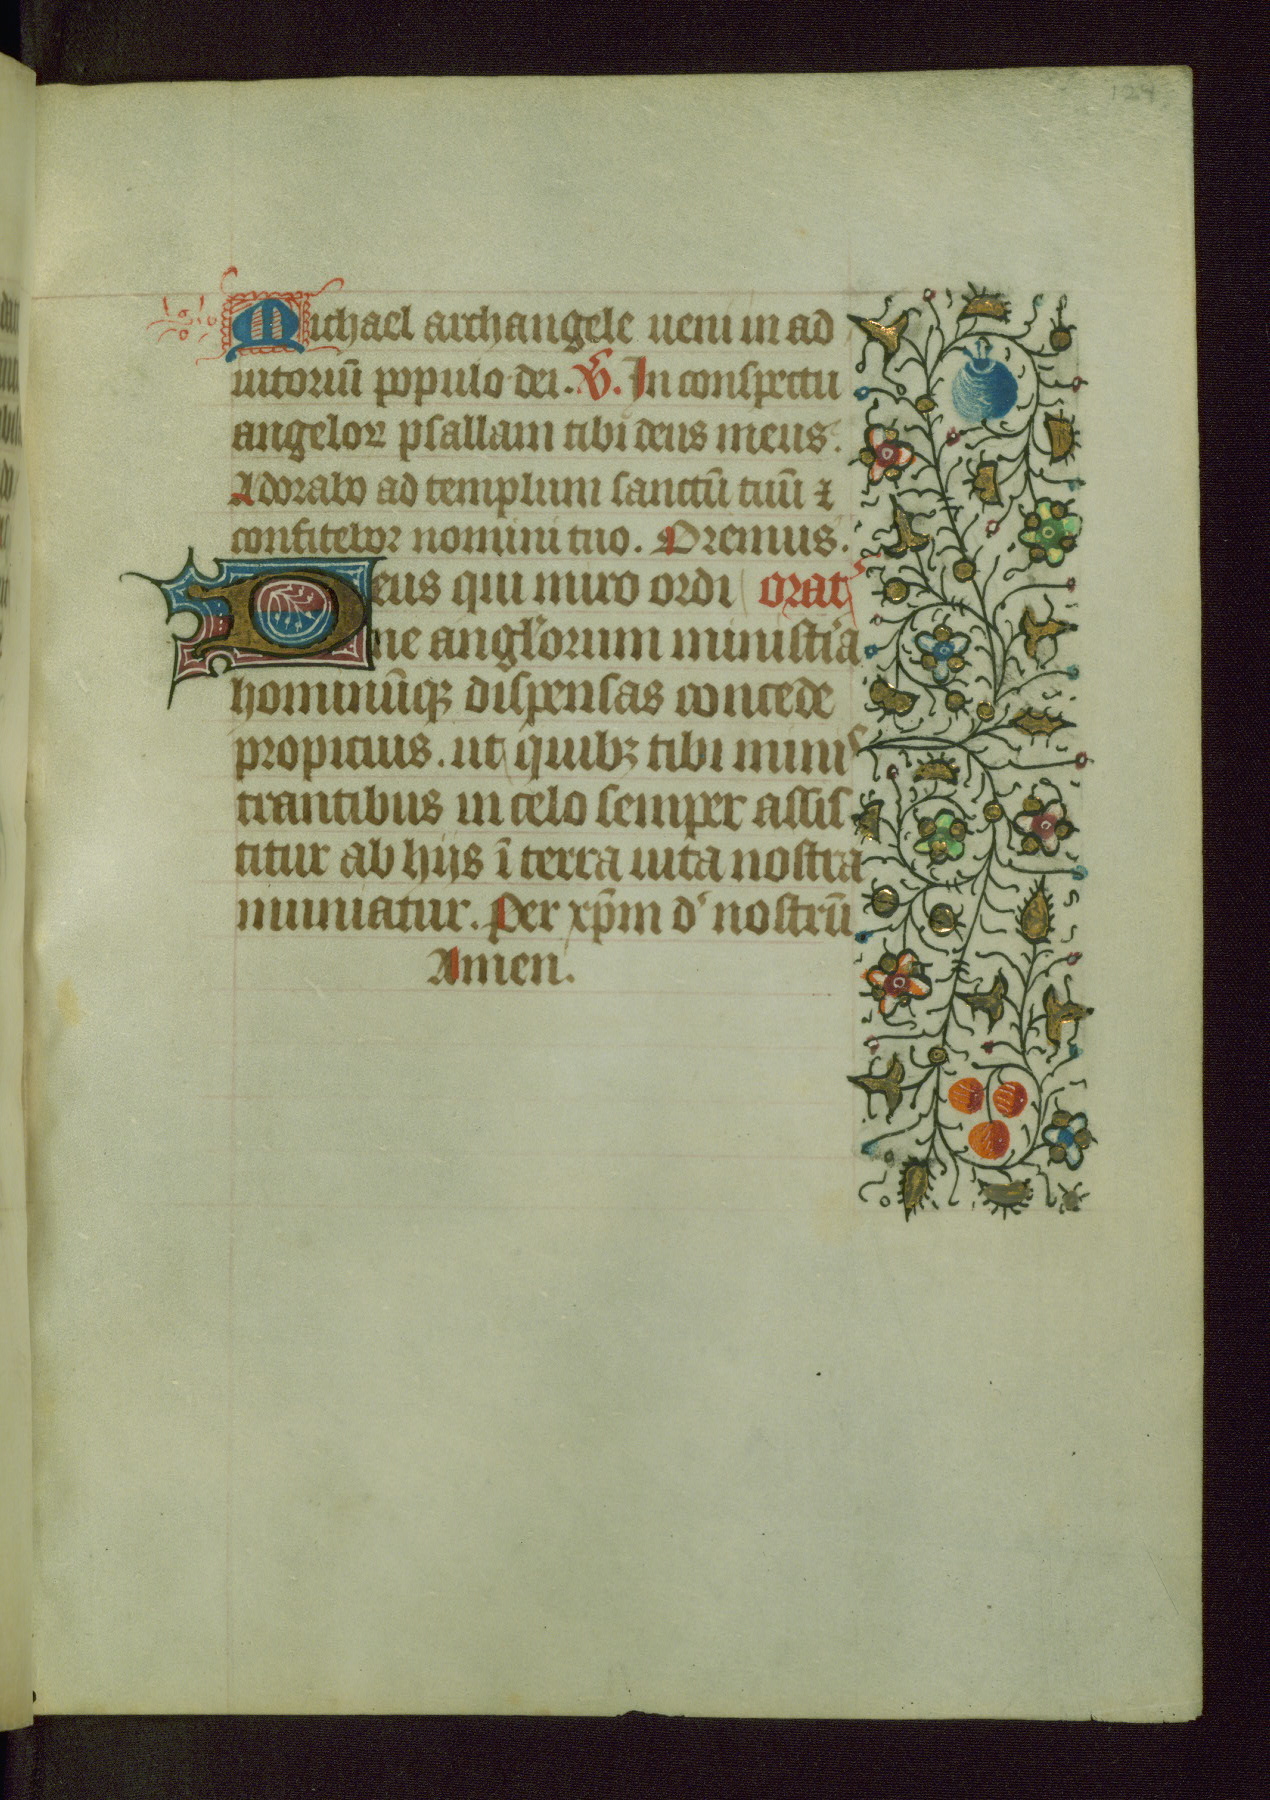 Michael archangele ueni in ad
iutoriū populo dei. V̄. In conspectu
angeloꝝ psallam tibi deus meus.
Adorabo ad templum sanctū tuū ⁊
confitebor nomini tuo. Oremus.
Deus qui miro ordi orat
ne angl'orum ministīa
hominūqꝫ dispensas concede
propicius. ut quibꝫ tibi minis
trantibus in celo semper assis
titur ab hijs ī terra uita nostra
muniatur. Per xp̄m d' nostrū
Amen.